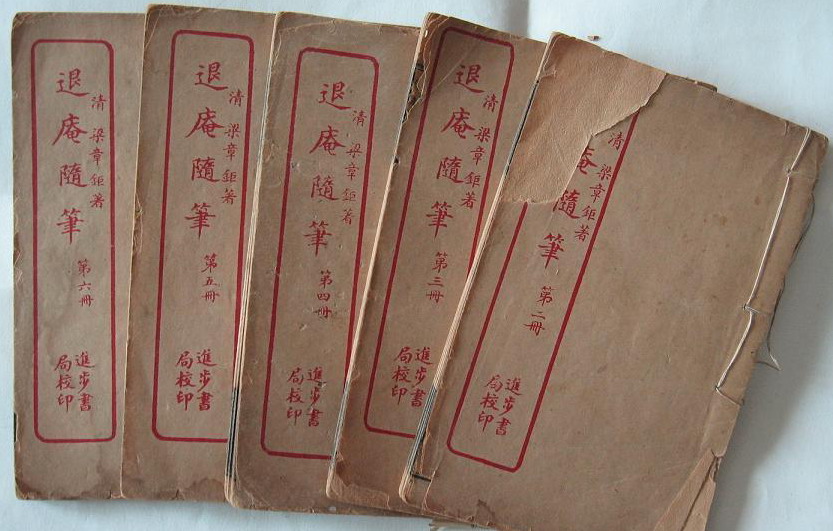 退庵隨筆 第六冊
清 梁章鉅著
進步書局校印
退庵隨筆 第五冊
清 梁章鉅著
進步書局校印
退庵隨筆 第四冊
清 梁章鉅著
進步書局校印
退庵隨筆 第三冊
清 梁章鉅著
進步書局校印
庵隨筆 第二冊
清 梁章鉅著
進步書局校印